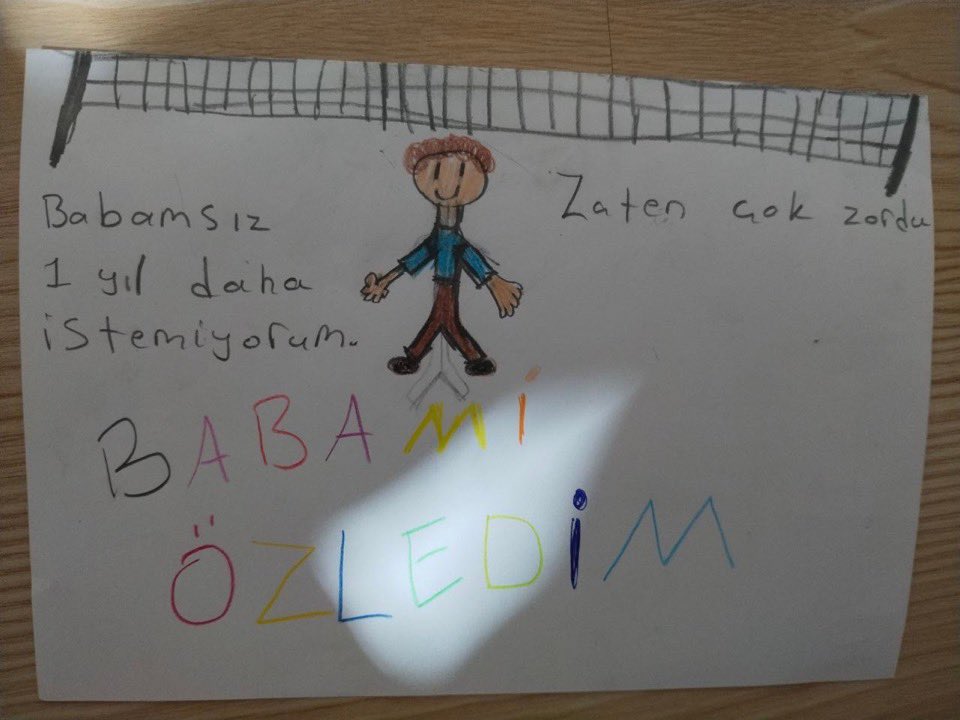 Babamsız
1 yıl daha
istemiyorum.
Zaten çok zordu
BABAMİ
ÖZLEDİM